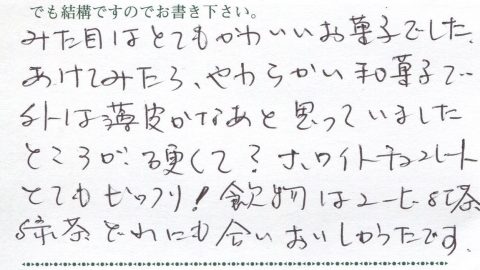 でも結構ですのでお書き下さい。
みた目はとてもかわいいお菓子でした、
あけてみたら、やわらかい和菓子で
外は薄皮かなあと思っていました
ところが、硬くて？ホワイトチョコレート
とてもビックリ！飲物はコーヒー、紅茶
緑茶どれにも合いおいしかったです。